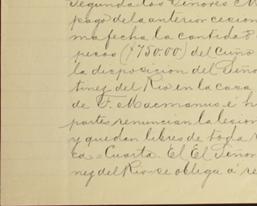 Segunda Los Señores M
pago de la anterior cesion
ma fecha la cantidad
pesos ($750.00) del cuño
la disposicion del Seño
tinez del Rio en la casa
de F. Macmanus e h
partes renuncian la lesion
y quedan libres de toda
ta = Cuarta. El El Señor
nez del Rio se obliga a re